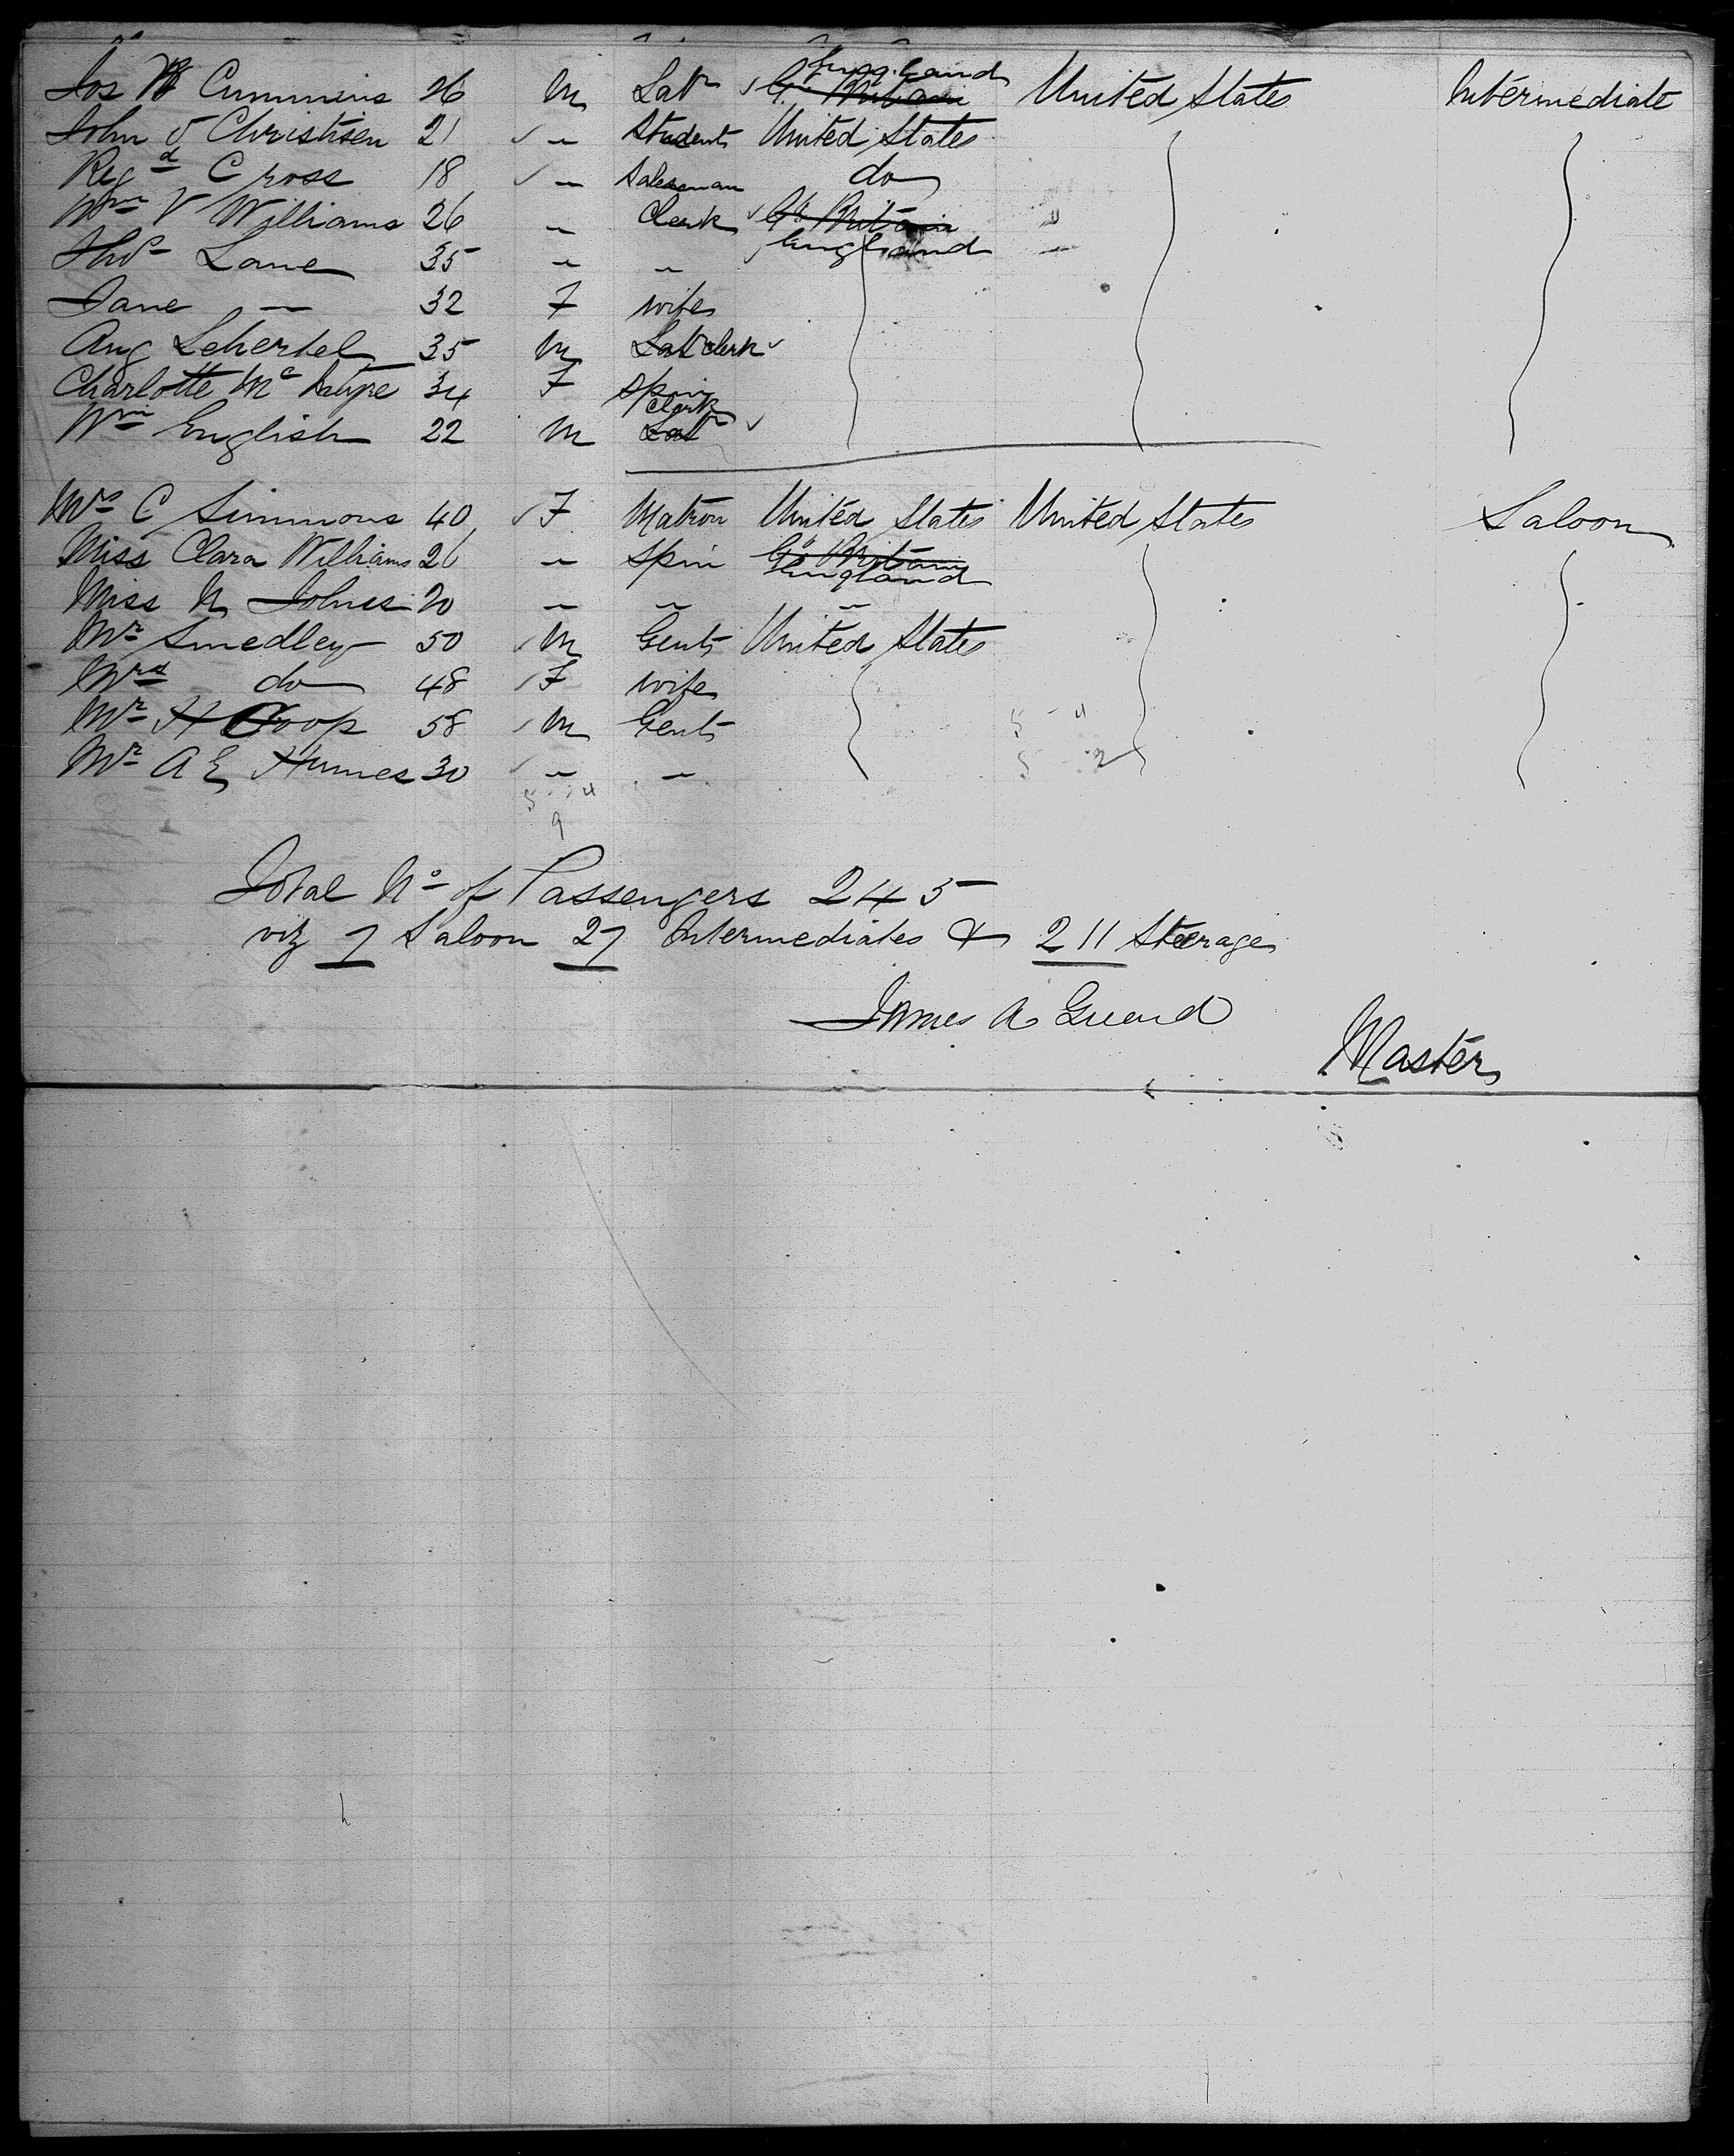 Jos W Cummins 26 M Labr England Gt Britain United States Intermediate
John J Christisen 21 " Student United States
Regd Cross 18 " Salesman do
Wm V Williams 26 " Clerk Gt Britain England
Thos Lane 35 " "
Jane " 32 F wife
Aug Lehertel 35 M Labr clerk
Charlotte Mc 34 F Spin
Wm English 22 M Clerk Labr
Mrs C Simmons 40 F Matron United States United States Saloon
Miss Clara Williams 26 " Spin Gt Britain England
Miss N Johnes 20 " " "
Mr Smedley 50 M Gent United States
Mrs do 48 F wife
Mr H Coop 58 M Gent 5 - 4
Mr A E Humes 30 " " 5 - 2
5 - 4
9
Total No of Passengers 245
viz 7 Saloon 27 Intermediates & 211 Steerage
James A Guead
Master